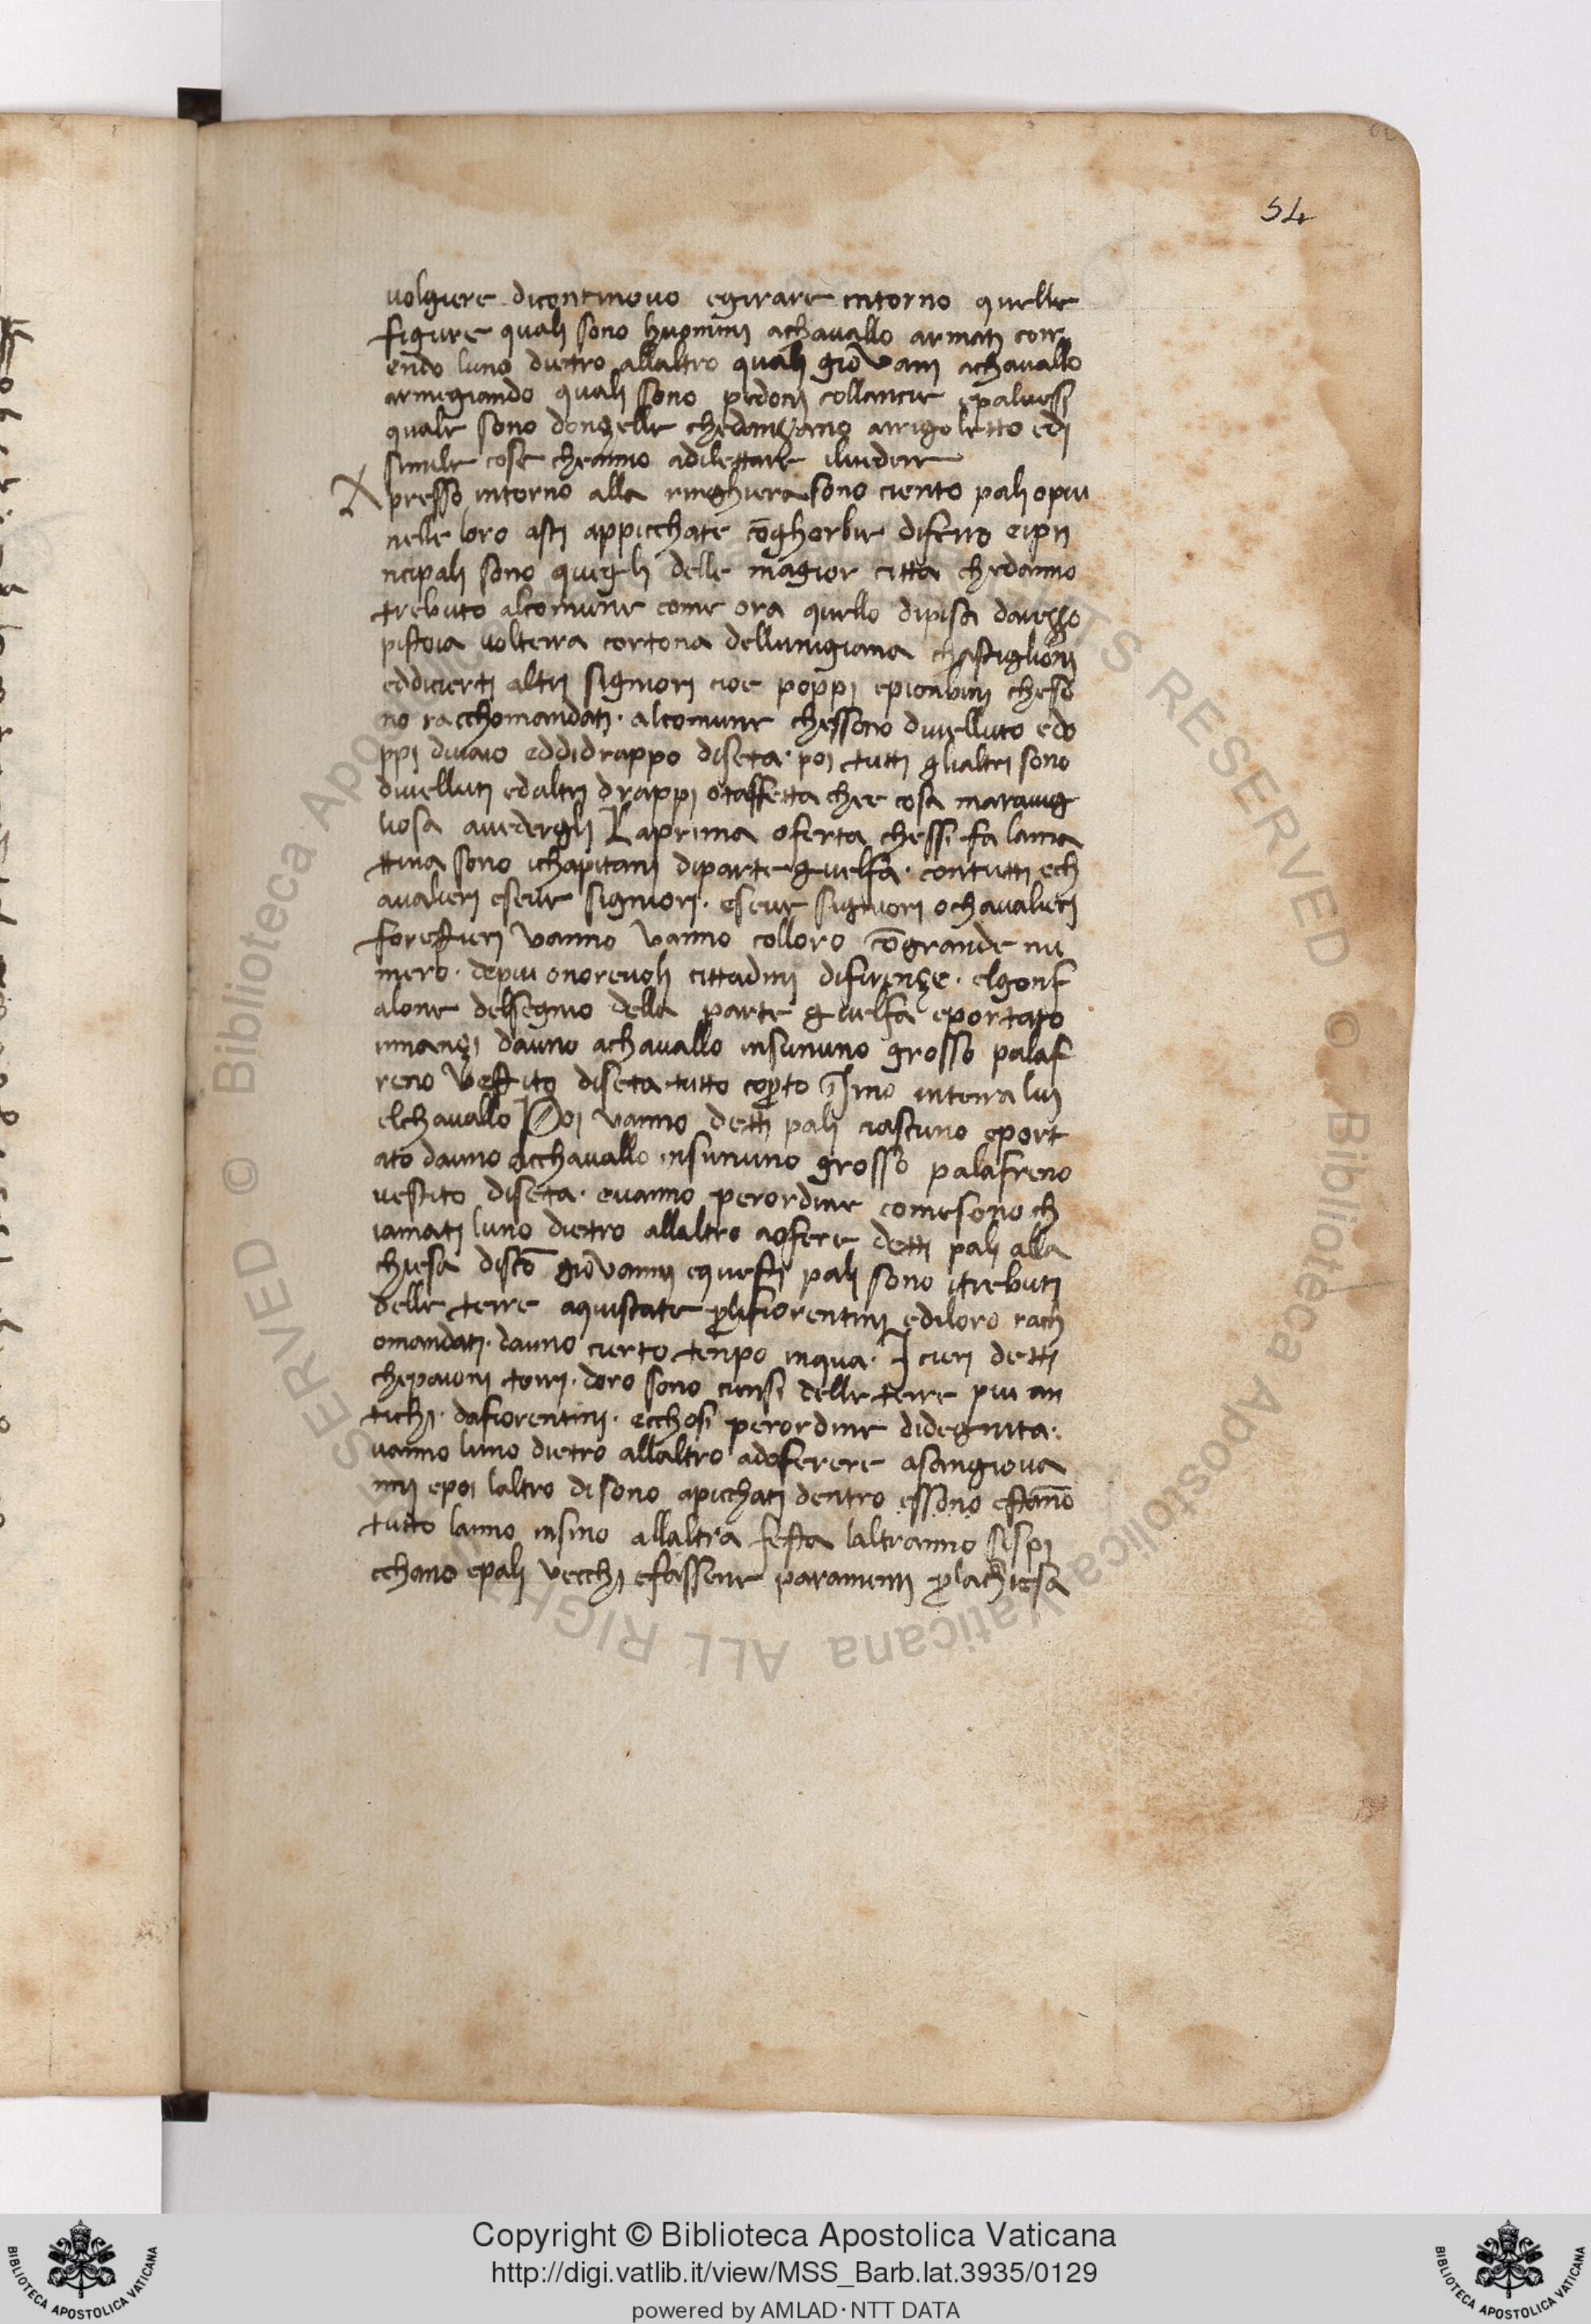 54
volgiere dicontinovo egirare intorno quelle
figure quali sono huomini achavallo armati corr
endo luno dietro allaltro quali giōvani achavallo
armegiando quali sono pedoni collancie epalvessi
quale sono donzelle chedanzano arrigoletto edi
simile cose cheanno adilettare ilvedere
Apresso intorno alla ringhiera sono ciento pali opiu
nelle loro asti appicchate cōghorbie diferro eipri
ncipali sono quegli delle magior citta chedanno
trebuto alcomune come ora quello dipisa darezzo
pistoia volterra cortona dellunigiana chastiglioni
eddicierti altri signiori cioe poppi epionbini chesō
no racchomandati · alcomune chessono divelluto edo
ppi divaio eddidrappo diseta · poi tutti glialtri sono
divelluti edaltri drappi otaffetta chee cosa maravig
liosa avedergli Laprima oferta chessi fa lama
ttina sono ichapitani diparte guelfa · contutti ech
avalieri eseve signiori · eseve signiori ochavalieri
forestieri vanno vanno colloro cōgrande nu
mero · depiu onorevoli cittadini difirenze · elgonf
alone delsegnio della parte guelfa eportato
innanzi dauno achavallo insununo grosso palaf
reno vestito diseta tutto coperto ījnno interra lui
elchavallo Poi vanno detti pali ciascuno eport
ato dauno acchavallo insununo grosso palafreno
vestito diseta · evanno perordine comesono ch
iamati luno dietro allaltro aofere detti pali alla
chiesa discō giōvanni equesti pali sono itrebuti
delle terre aquistate plifiorentini ediloro rach
omandati · dauno cierto tenpo inqua · I cieri detti
chepaioni torri · doro sono ciensi delle terre piu an
tichi · dafiorentini · ecchosi perordine didegnita ·
vanno luno dietro allaltro adoferere asangiova
nni epoi laltro di sono apicchati dentro essono estānō
tutto lanno insino allaltra festa laltranno sispi
cchano epali vecchi efassene paramenti plachiesa
Copyright © Biblioteca Apostolica Vaticana
http://digi.vatlib.it/view/MSS_Barb.lat.3935/0129
powered by AMLAD·NTT DATA